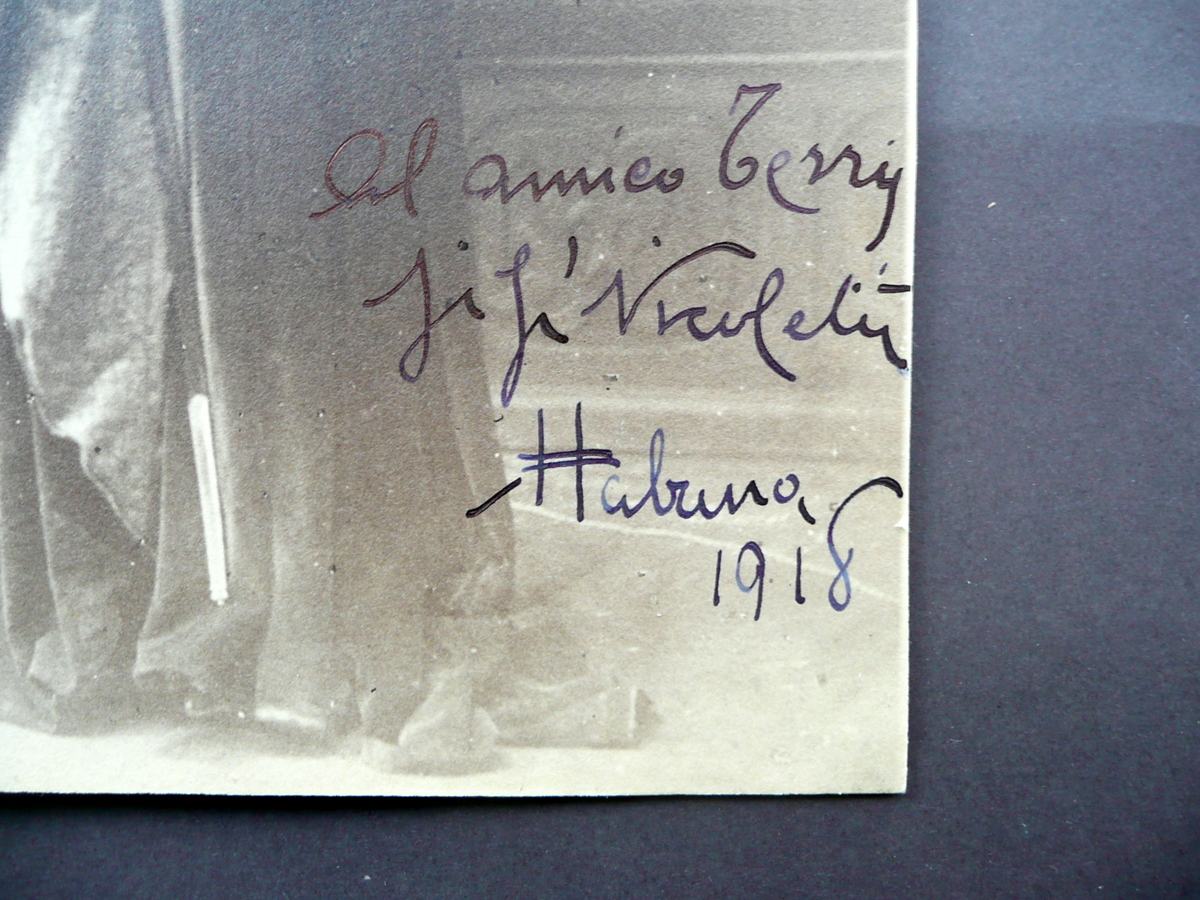 Al amico Terry
Gigi Nicoletti
Habana
1918